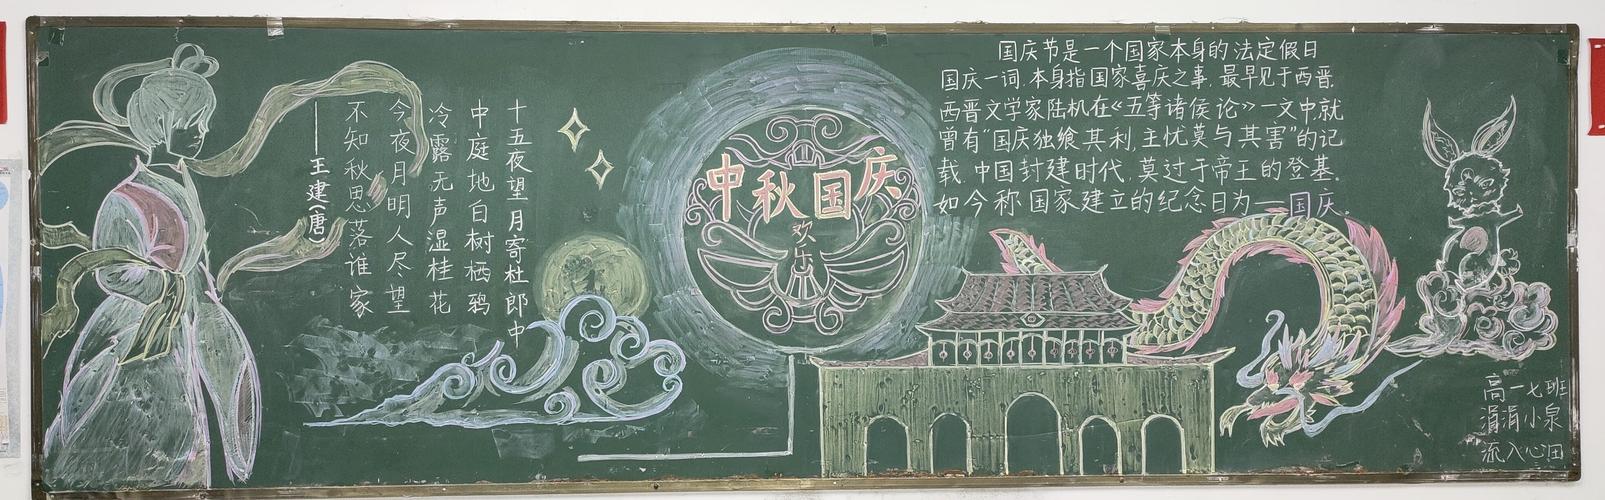 十五夜望月寄杜郎中
中庭地白树栖鸦
冷露无声湿桂花
今夜月明人尽望
不知秋思落谁家
——王建(唐)
中秋国庆
欢乐
国庆节是一个国家本身的法定假日
国庆一词,本身指国家喜庆之事,最早见于西晋.
西晋文学家陆机在《五等诸侯论》一文中就
曾有“国庆独飨其利,主忧莫与其害”的记
载,中国封建时代,莫过于帝王的登基.
如今称国家建立的纪念日为——国庆.
高一七班
涓涓小泉
流入心田